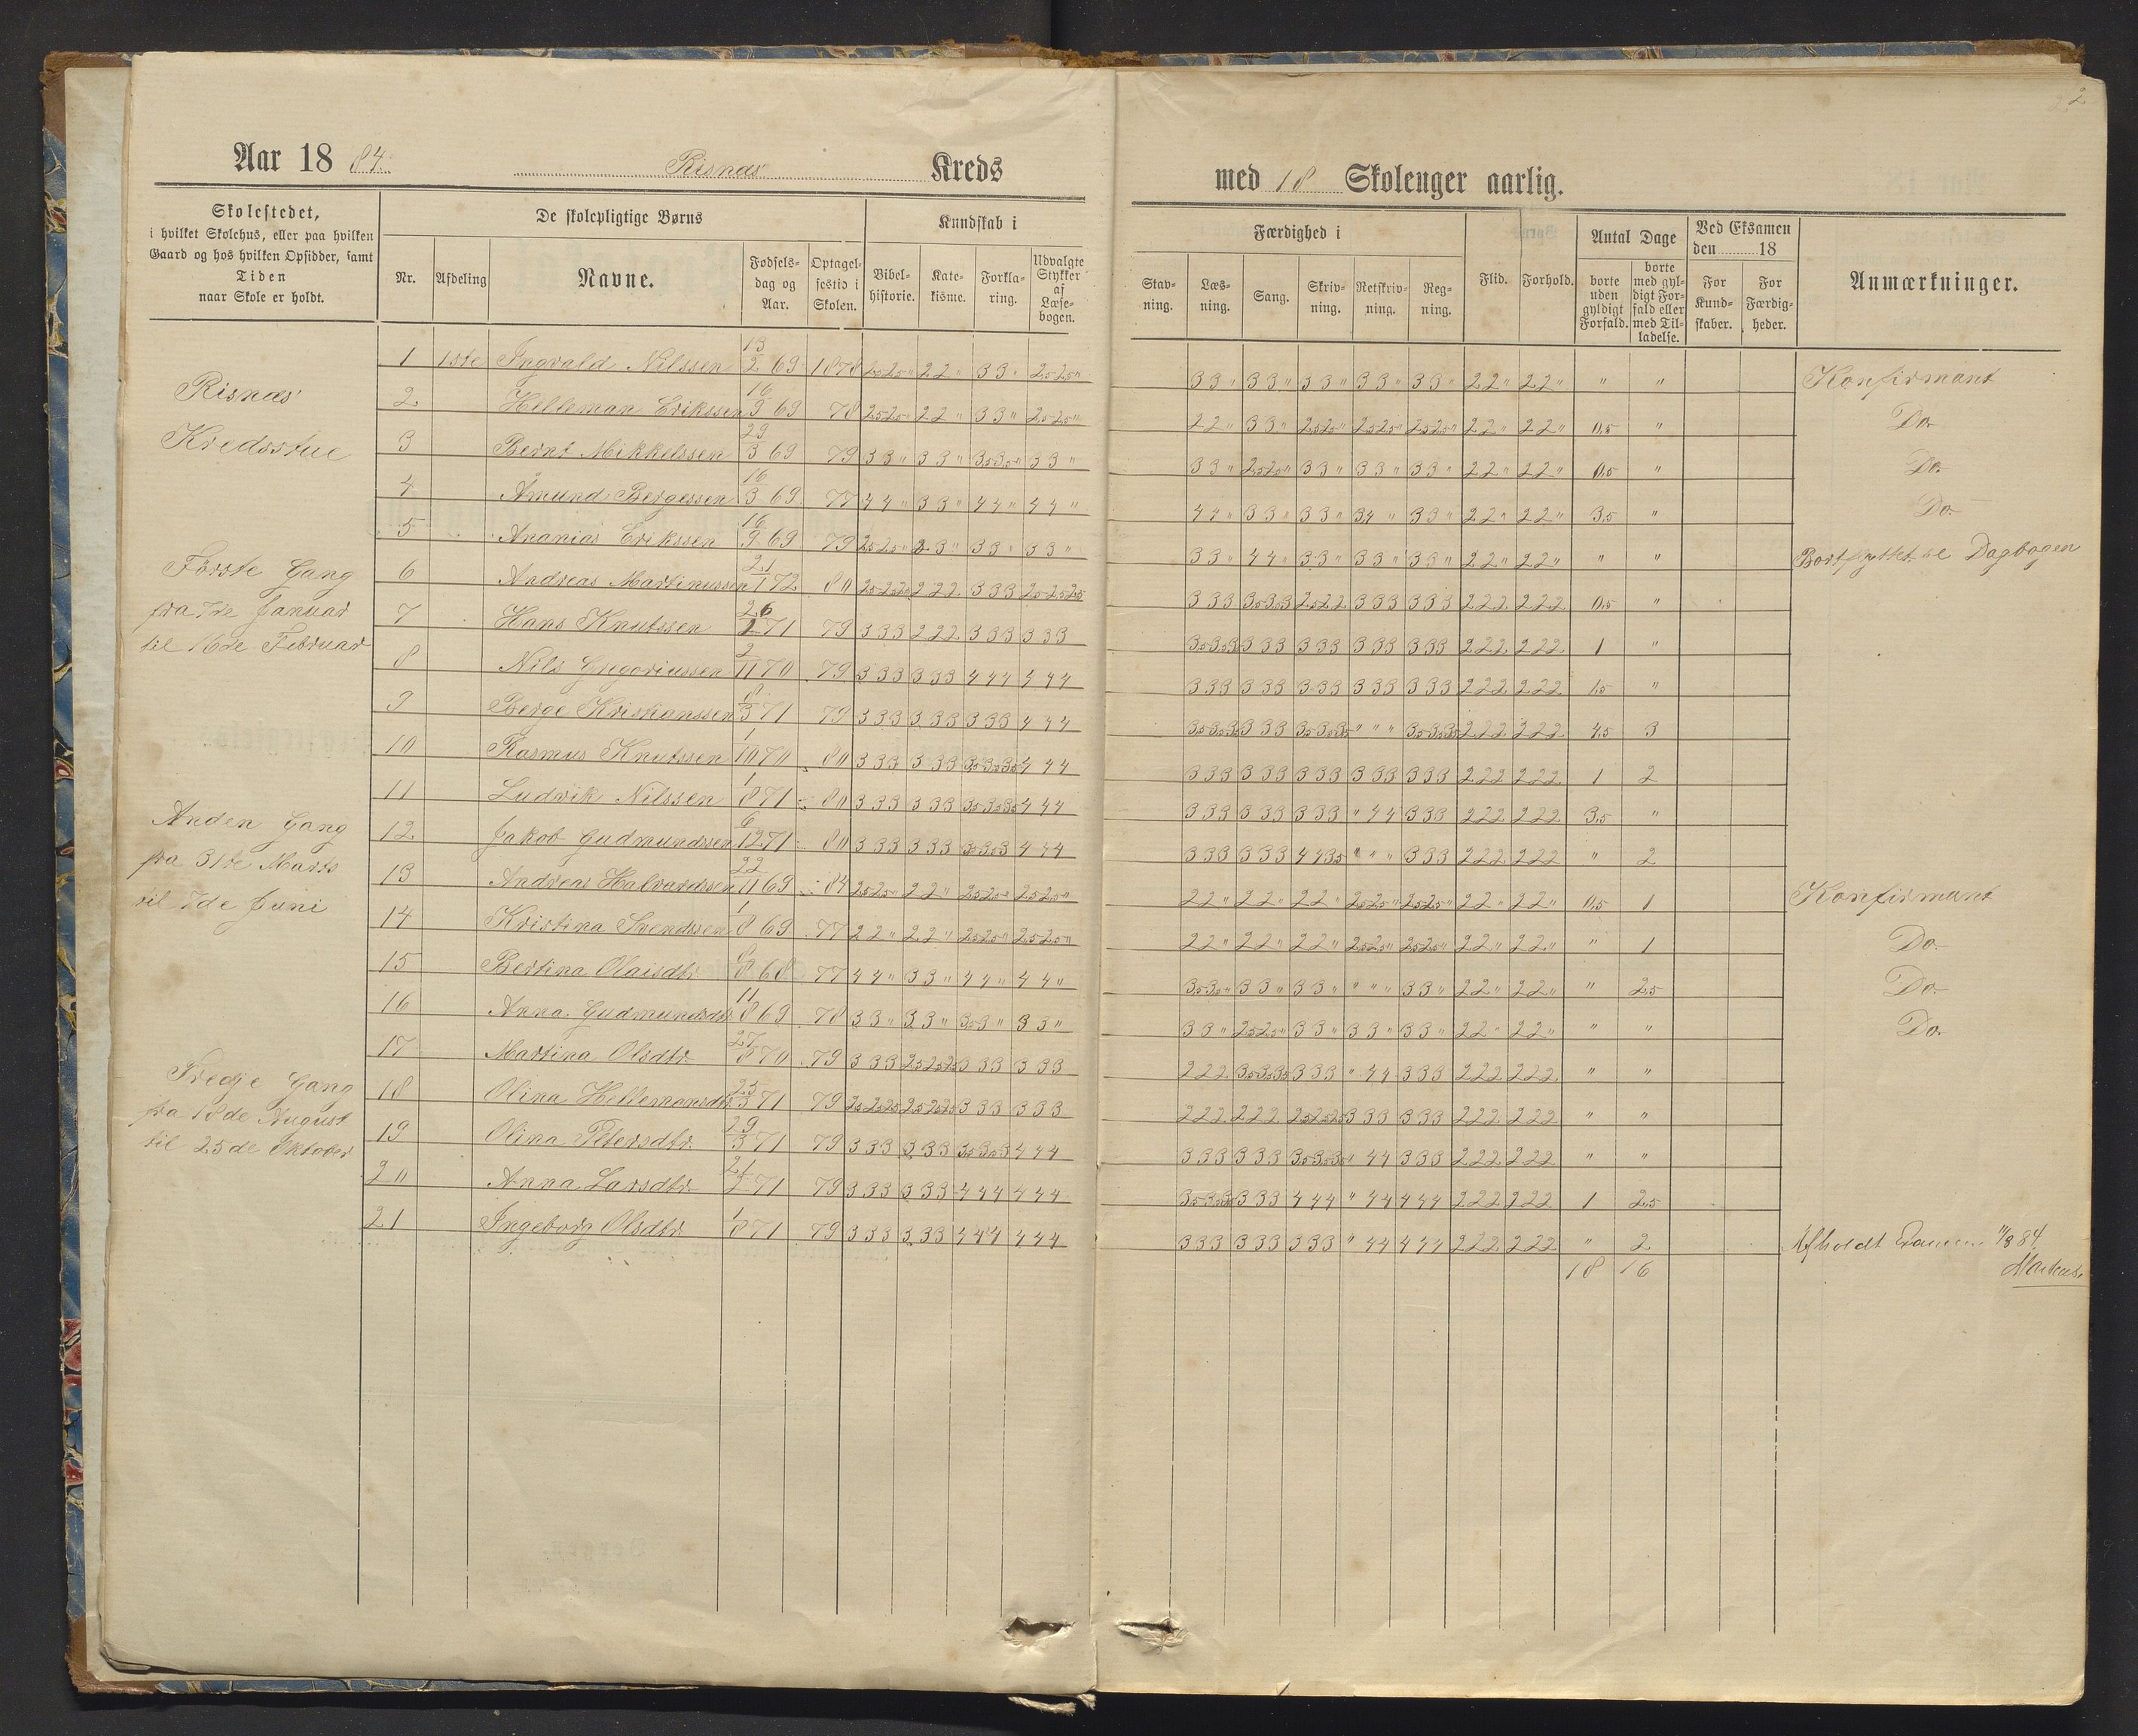 2
Aar 1884. Risnæs Kreds
med 18 Skoleuger aarlig.
Skolestedet,
i hvilket Skolehus, eller paa hvilken
Gaard og hos hvilken Opsidder, samt
Tiden
naar Skole er holdt.
De skolepligtige Børns
Nr. Afdeling Navne. Fødsels-dag og Aar. Optagel-sestid i Skolen.
Kundskab i
Bibel-historie. Kate-kisme. Forkla-ring. Udvalgte Stykker af Læse-bogen.
Færdighed i
Stav-ning. Læs-ning. Sang. Skriv-ning. Retskriv-ning. Reg-ning.
Flid. Forhold.
Antal Dage
borte uden gyldigt Forfald. borte med gyl-digt For-fald eller med Til-ladelse.
Ved Eksamen
den 18
For Kund-skaber. For Færdig-heder.
Anmærkninger.
Risnæs
Kredsstue
Første Gang
fra 7de Januar
til 16de Februar
Anden Gang
fra 31te Marts
til 7de Juni
Tredje Gang
fra 18de August
til 25de Oktober
1 1ste Ingvald Nilssen 13/2 69 1878 2,5 2,5 " 2 2 " 3 3 " 2,5 2,5 " 3 3 " 3 3 " 3 3 " 3 3 " 3 3 " 2 2 " 2 2 " " " Konfirmant
2 Helleman Erikssen 16/9 69 78 2,5 2,5 " 2 2 " 3 3 " 2,5 2,5 " 2 2 " 3 3 " 2,5 2,5 " 2,5 2,5 " 2,5 2,5 " 2 2 " 2 2 " 0,5 " Do.
3 Bernt Mikkelssen 29/3 69 79 3 3 " 3 3 " 3,5 3,5 " 3 3 " 3 3 " 2,5 2,5 " 3 3 " 3 3 " 3 3 " 2 2 " 2 2 " 0,5 " Do.
4 Åmund Bergessen 16/3 69 77 4 4 " 3 3 " 4 4 " 4 4 " 4 4 " 3 3 " 3 3 " 3,4 " 3 3 " 2 2 " 2 2 " 3,5 " Do.
5 Ananias Erikssen 16/9 69 79 2,5 2,5 " 2 3 " 3 3 " 3 3 " 3 3 " 4 4 " 3 3 " 3 3 " 3 3 " 2 2 " 2 2 " " " Bortflyttet se Dagbogen
6 Andreas Martinussen 21/1 72 80 2,5 2,5 2,5 2 2 2 3 3 3 2,5 2,5 2,5 3 3 3 3,5 3,5 3 2,5 2 2 3 3 3 3 3 3 2 2 2 2 2 2 0,5 "
7 Hans Knutssen 26/2 71 79 3 3 3 2 2 2 3 3 3 3 3 3 3,5 3,5 3,5 3 3 3 3 3 3 3 3 3 3 3 3 2 2 2 2 2 2 1 "
8 Nils Gregoriussen 2/11 70 79 3 3 3 3 3 3 4 4 4 4 4 4 3 3 3 3 3 3 3 3 3 3 3 3 3 3 3 2 2 2 2 2 2 1,5 "
9 Berge Kristianssen 8/3 71 79 3 3 3 3 3 3 3 3 3 4 4 4 3,5 3,5 3,5 3 3 3 3,5 3,5 3,5 " " " 3,5 3,5 3,5 2 2 2 2 2 2 4,5 3
10 Rasmus Knutssen 1/10 70 80 3 3 3 3 3 3 3,5 3,5 3,5 4 4 4 3 3 3 3 3 3 3 3 3 3 3 3 3 3 3 2 2 2 2 2 2 1 2
11 Ludvik Nilssen 1/8 71 80 3 3 3 3 3 3 3,5 3,5 3,5 4 4 4 3 3 3 3 3 3 3 3 3 " 4 4 3 3 3 2 2 2 2 2 2 3,5 "
12 Jakob Gudmundssen 6/12 71 80 3 3 3 3 3 3 3,5 3,5 3 4 4 4 3 3 3 3 3 3 4 4 3,5 " " " 3 3 3 2 2 2 2 2 2 " 2
13 Andreas Halvardssen 22/11 69 84 2,5 2,5 " 2 2 " 2,5 2,5 " 2,5 2,5 " 2 2 " 2 2 " 2 2 " 2,5 2,5 " 2,5 2,5 " 2 2 " 2 2 " 0,5 1 Konfirmant
14 Kristina Svendssen 1/8 69 77 2 2 " 2 2 " 2,5 2,5 " 2,5 2,5 " 2 2 " 2 2 " 2 2 " 2,5 2,5 " 2,5 2,5 " 2 2 " 2 2 " " 1 Do.
15 Bertina Olaisdtr. 8/8 68 77 4 4 " 3 3 " 4 4 " 4 4 " 3,5 3,5 " 3 3 " 3 3 " " " " 3 3 " 2 2 " 2 2 " " 2,5 Do.
16 Anna Gudmundsdtr. 11/8 69 78 3 3 " 3 3 " 3,5 3 " 3 3 " 3 3 " 2,5 2,5 " 3 3 " 3 3 " 3 3 " 2 2 " 2 2 " " " Do.
17 Martina Olsdtr. 27/5 70 79 3 3 3 2,5 2,5 2,5 3 3 3 3 3 3 2 2 2 3,5 3,5 3,5 3 3 3 " 4 4 3 3 3 2 2 2 2 2 2 " "
18 Olina Hellemansdtr. 25/3 71 79 2,5 2,5 2,5 2,5 2,5 2,5 3 3 3 3 3 3 2 2 2 2 2 2 2,5 2,5 2,5 3 3 3 3 3 3 2 2 2 2 2 2 " "
19 Olina Petersdtr. 29/3 71 79 3 3 3 3 3 3 3,5 3,5 3 4 4 4 3 3 3 3 3 3 3,5 3,5 3,5 " 4 4 3 3 3 2 2 2 2 2 2 " "
20 Anna Larsdtr. 71 79 3 3 3 3 3 3 4 4 4 4 4 4 3,5 3,5 3,5 3 3 3 4 4 4 " 4 4 4 4 4 2 2 2 2 2 2 1 2,5
21 Ingeborg Olsdtr. 1/8 71 79 3 3 3 3 3 3 4 4 4 4 4 4 3 3 3 3 3 3 3 3 3 " 4 4 4 4 4 2 2 2 2 2 2 " 2 Afholdt Examen 11/8 84.
18 16